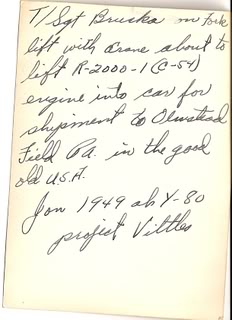 T/Sgt Bruska on fork
lift with crane about to
lift R-2000-1 (C-54)
engine into car for
shipment to Olmstead
Field Pa. in the good
old U.S.A.
Jan 1949 at Y-80
project Vittles